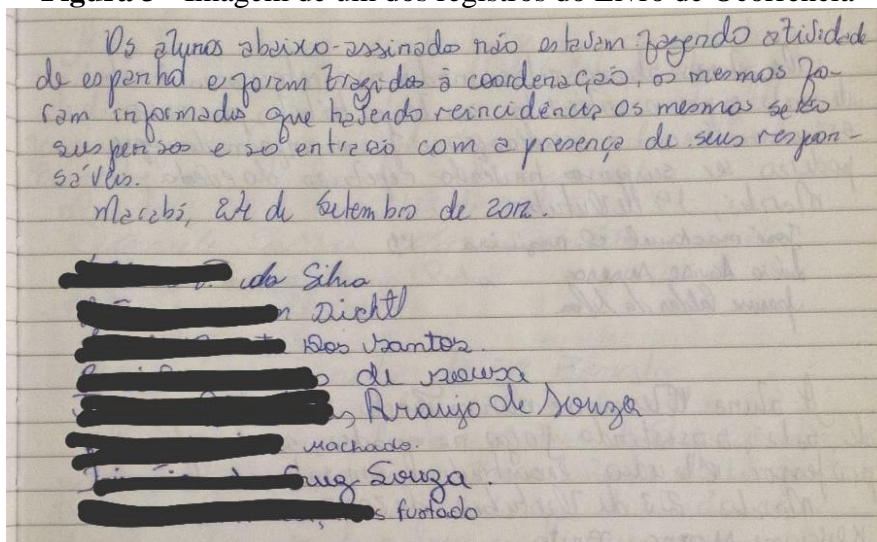 Figura 3 - Imagem de um dos registros do Livro de Ocorrência
Os alunos abaixo-assinado não estavam fazendo atividade
de espanhol e foram tragidos à coordenação, os mesmos fo-
ram informados que havendo reincidência os mesmos serão
suspensos e só entrarão com a presença de seus respon-
sáveis.
Marabá, 24 de Setembro de 2012.
da Silva
Dicht
Dos Santos.
de sousa
Araujo de Souza
Machado.
Souza.
furtado